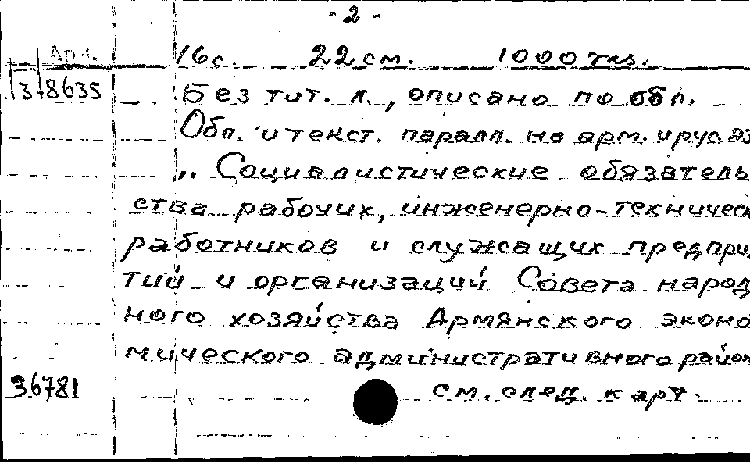 - 2 -
Арм.
16 с. 22 см. 1000 экз.
3-8635
Без тит. л., описано по обл.
Обл. и текст. паралл. на арм. и рус. яз
„ Социалистические обязатель
ства рабочих, инженерно-техничес
работников и служащих предпри
тий и организаций Совета народ
ного хозяйства Армянского эконо
мического административного район
36781
см. след. карт.